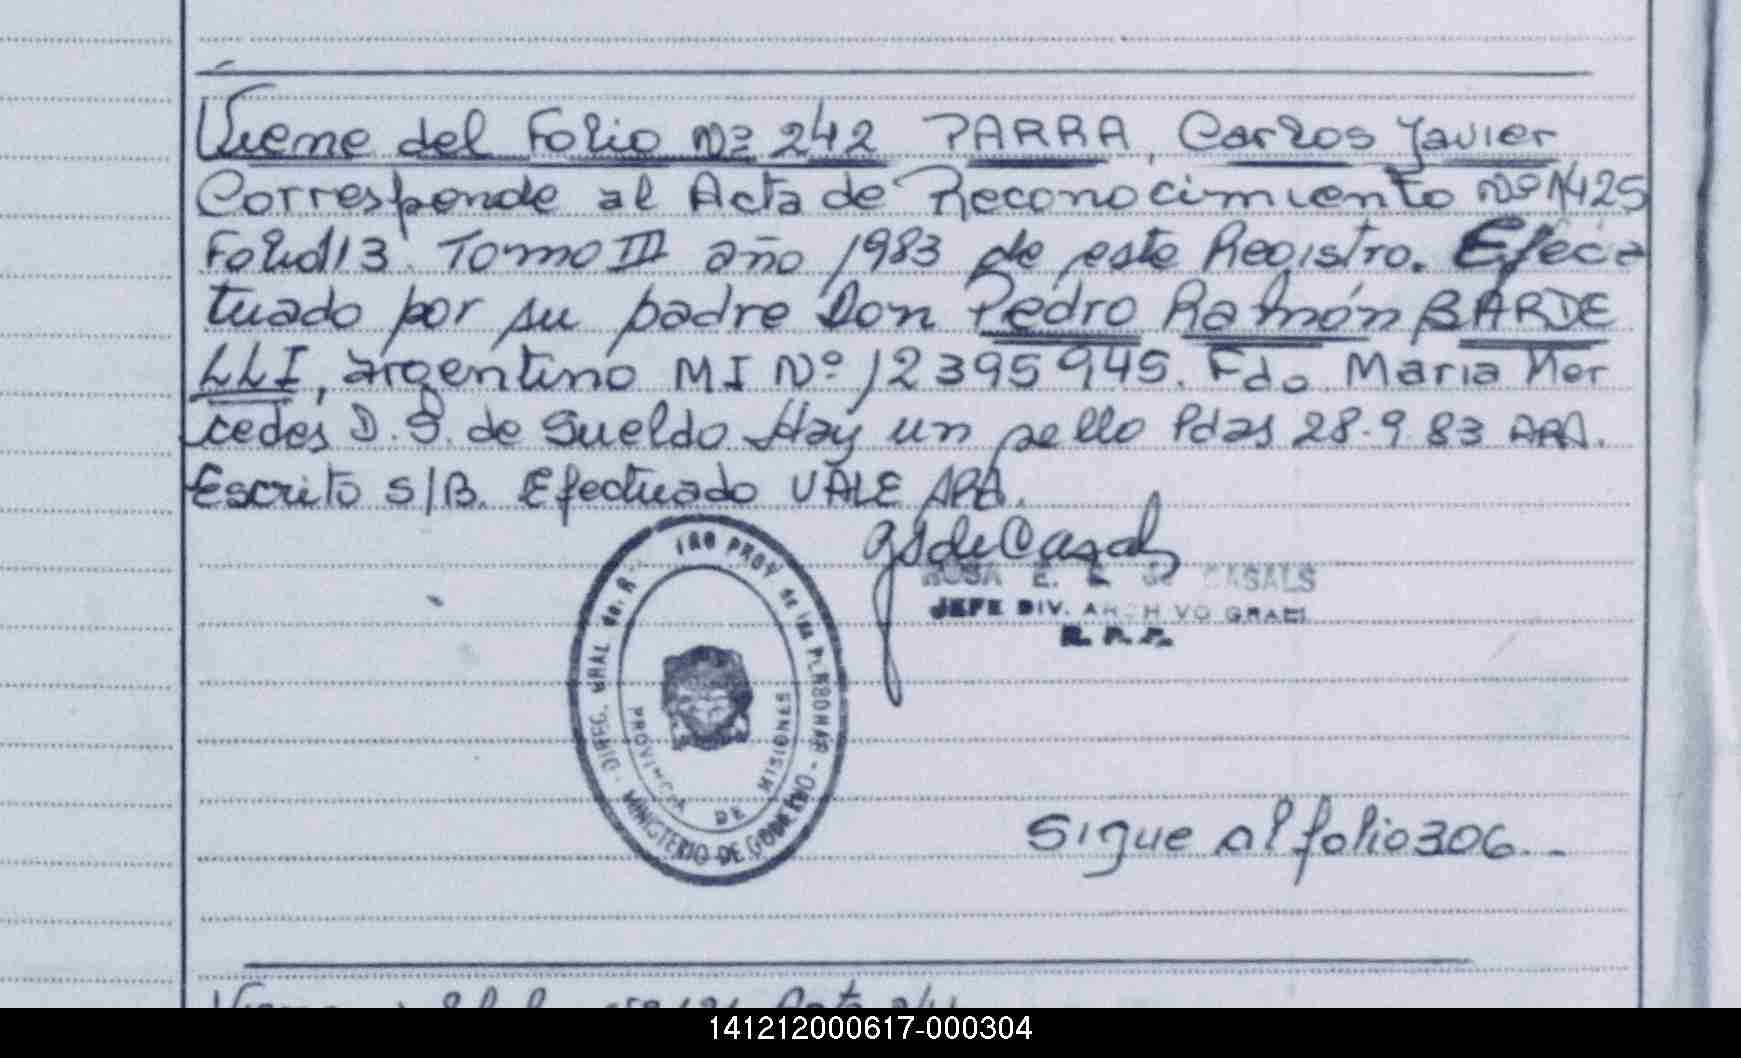 Viene del Folio Nº 242 PARRA, Carlos Javier
Corresponde al Acta de Reconocimiento Nº 1425
Folio 113 Tomo III año 1983 de este Registro. Efec
tuado por su padre Don Pedro Ramón BARDE
LLI, argentino MI Nº 12395945. Fdo Maria Mer
cedes D. S. de Sueldo Hay un sello Pdas 28.9.83 ARA.
Escrito S/B. Efectuado VALE ARA.
ROSA E. L de CASALS
JEFE DIV. ARCHIVO GRAL
R. P. P.
PROVINCIA DE MISIONES
MINISTERIO DE GOBIERNO
Sigue al folio 306..
141212000617-000304